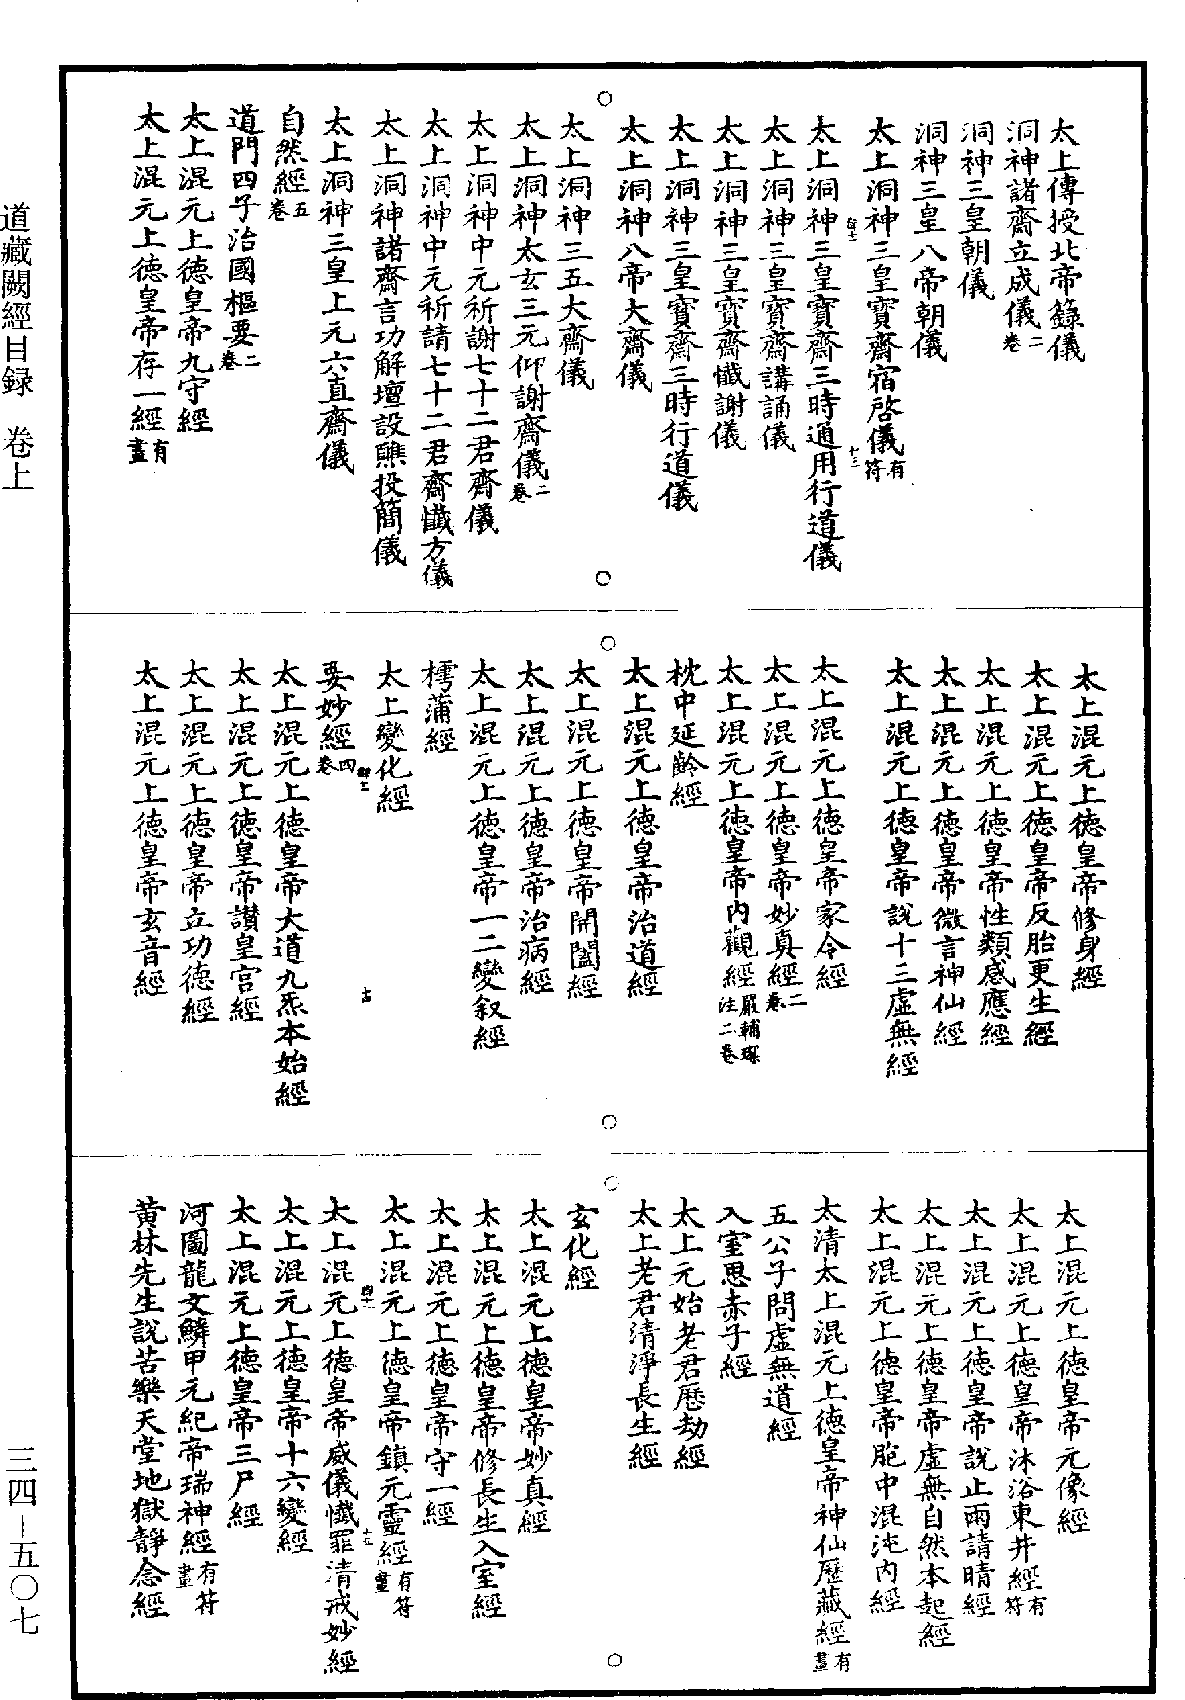 太上傳授北帝籙儀
洞神諸齋立成儀二卷
洞神三皇朝儀
洞神三皇八帝朝儀
太上洞神三皇寶齋宿啓儀有符
太上洞神三皇寶齋三時通用行道儀
太上洞神三皇寶齋講誦儀
太上洞神三皇寶齋懺謝儀
太上洞神三皇寶齋三時行道儀
太上洞神八帝大齋儀
太上洞神三五大齋儀
太上洞神太玄三元仰謝齋儀二卷
太上洞神中元祈謝七十二君齊儀
太上洞神中元祈請七十二君齋懺方儀
太上洞神諸齋言功解壇設醮投簡儀
太上洞神三皇上元六直齋儀
自然經五卷
道門四子治國樞要二卷
太上混元上德皇帝九守經
太上混元上德皇帝存一經有畫
太上混元上德皇帝修身經
太上混元上德皇帝反胎更生經
太上混元上德皇帝性類感應經
太上混元上德皇帝微言神仙經
太上混元上德皇帝說十三虛無經
太上混元上德皇帝家令經
太上混元上德皇帝妙真經二卷
太上混元上德皇帝內觀經嚴輔琛注二卷
枕中延齡經
太上混元上德皇帝治道經
太上混元上德皇帝開闔經
太上混元上德皇帝治病經
太上混元上德皇帝一二變叙經
樗蒲經
太上變化經
要妙經四卷
太上混元上德皇帝大道九炁本始經
太上混元上德皇帝讃皇宮經
太上混元上德皇帝立功德經
太上混元上德皇帝玄音經
太上混元上德皇帝元像經
太上混元上德皇帝沐浴東井經有符
太上混元上德皇帝說止雨請晴經
太上混元上德皇帝虛無自然本起經
太上混元上德皇帝胞中混沌內經
太清太上混元上德皇帝神仙歷藏經有畫
五公子問虛無道經
入室思赤子經
太上元始老君歷劫經
太上老君清淨長生經
玄化經
太上混元上德皇帝妙真經
太上混元上德皇帝修長生入室經
太上混元上德皇帝守一經
太上混元上德皇帝鎮元靈經有符畫
太上混元上德皇帝威儀懺罪清戒妙經
太上混元上德皇帝十六變經
太上混元上德皇帝三尸經
河圖龍文鱗甲元紀帝瑞神經有符畫
黄林先生說苦樂天堂地獄靜念經
道藏闕經目録　卷上
三四—五〇七